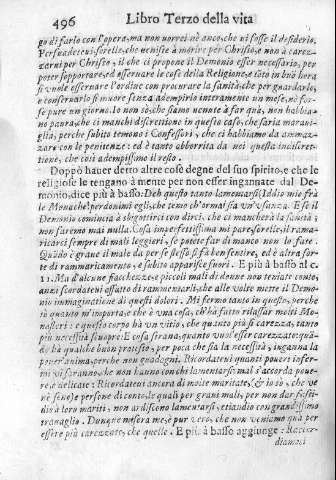 496 Libro Terzo della vita
go di farlo con l'opera, ma non vorrei nè anco, che vi fosse il desiderio.
Persuadeteui, sorelle, che venisse à morire per Christo, e non à carez-
zarui per Christo, il che ci propone il Demonio esser necessario, per
poter sopportare, ed osseruare le cose della Religione, e tãto in buõ hora
si vuole osseruare l'ordine con procurare la sanità, che per guardarlo,
e conseruarlo si muore senza adempirlo intieramente vn mese, nè for-
se pure vn giorno. Io non sò, che siamo venute à far quà, non habbia-
no paura, che ci manchi discrettione in questo caso, che saria mara-
glia, perche subito temono i Confessori, che ci habbiamo da ammaz-
zare con le penitenze: ed è tanto abborrita da noi questa indiscret-
tione, che così adempissimo il resto.
Doppò hauer detto altre cose degne del suo spirito, e che le
religiose le tengano à mente per non esser ingannate dal De-
monio, dice più à basso. Deh questo tanto lamentarsi Iddio mio frà
le Monache perdonimi egli, che temo ch'ormai sia vn'vsanza. E se il
Demonio comincia à sbigottirci con dirci, che ci mancherà la sanità;
non faremo mai nulla. Cosa imperfettissima mi pare, sorelle, il rama-
ricarsi sempre di mali leggieri, se potete far di manco non lo fate.
Quãdo è graue il male da per se stesso si fà ben sentire, ed è altra sor-
te di rammaricamento, e subito apparisce fuori. E più à basso al c.
11. Ma d'alcune fiacchezze, e piccoli mali di donne non teniate conto,
anzi scordateui affatto di rammentarli, che alle volte mette il Demo-
nio immaginatione di questi dolori. Mi fermo tanto in questo, perche
sò quanto m'importa, e che è vna cosa, ch'hà fatto rilassar molti Mo-
nasteri: e questo corpo hà vn vitio, che quanto più si carezza, tanto
più necessità scuopre: E cosa strana, quanto vuol esser carezzato: quã-
do hà qualche buon pretesto, per poca che sia la necessità, inganna la
pouer'anima, perche non guadagni. Ricordateui quanti poueri infer-
mi vi saranno, che non hanno con chi lamentarsi: mal s'accorda poue-
re, e delicate: Ricordateui ancora di molte maritate, (& io sò, che ve
nè sono) e persone di conto, le quali per gran mali, per non dar fasti-
dio à loro mariti, non ardiscono lamentarsi, etiandio con grandissimo
trauaglio. Dunque misera me, è pur vero, che non veniamo quà per
essere più carezzate, che quelle. E più à basso aggiunge: Ricor-
diamoci